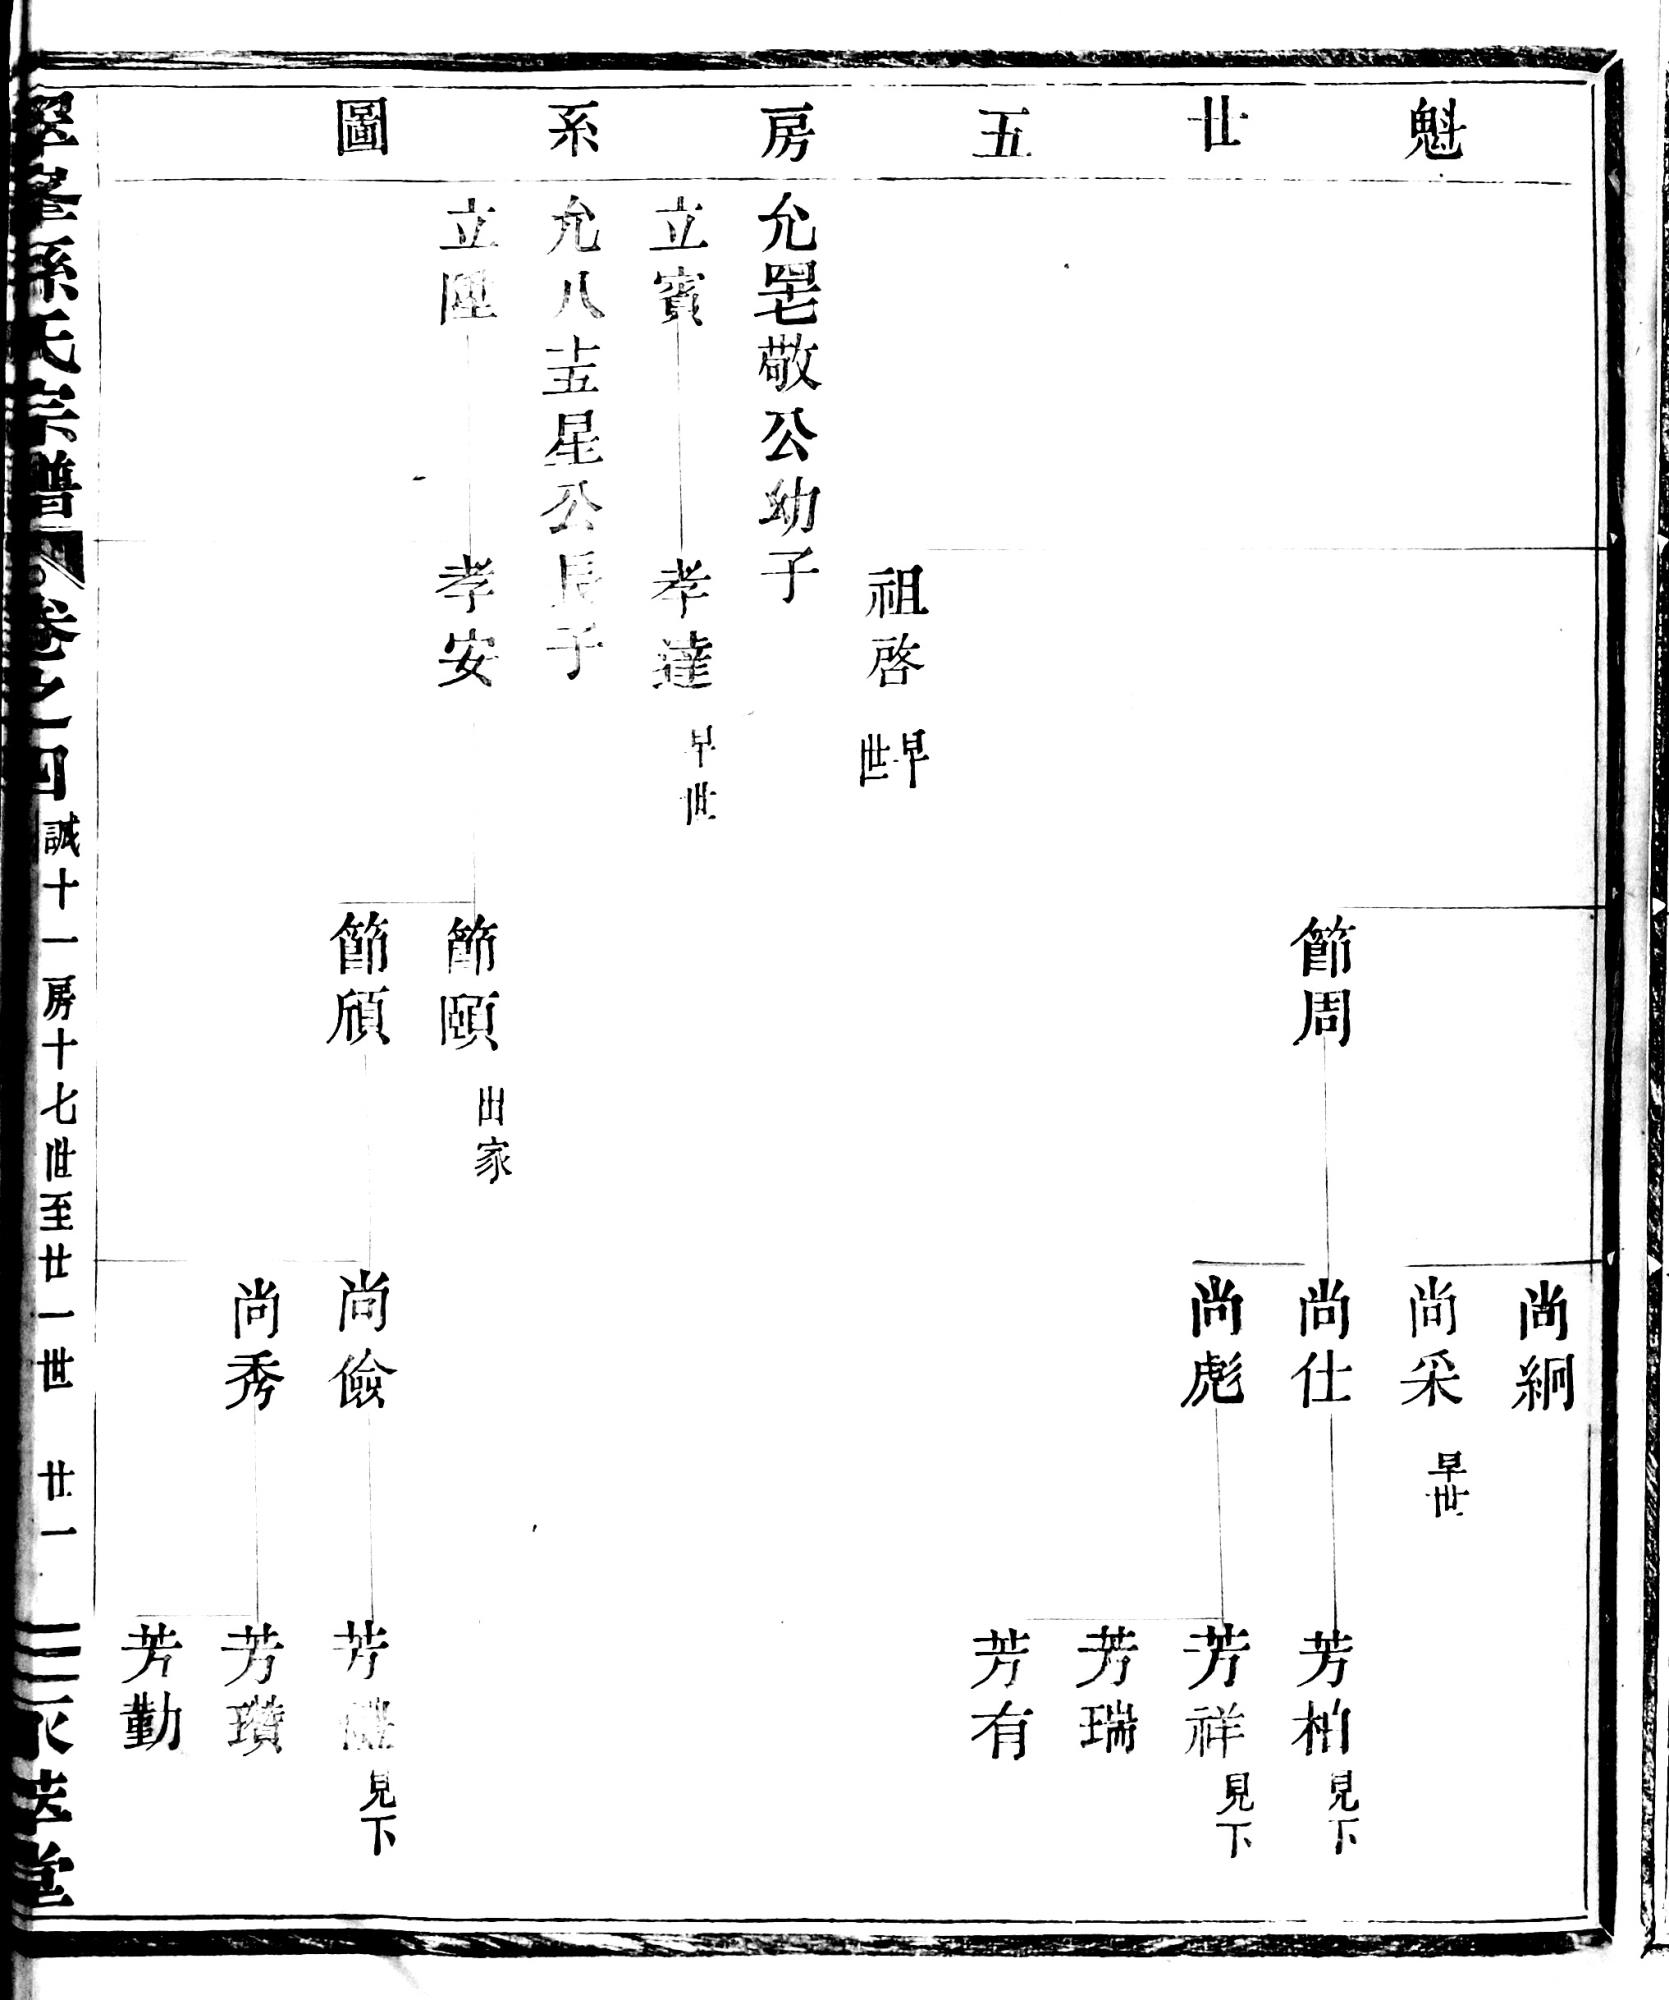 魁廿五房系圖
尚絅
尚采 早世
節周
尚仕
芳柏 見下
尚彪
芳祥 見下
芳瑞
芳有
祖啓 早世
允罡七敬公幼子
立賓
孝達 早世
允八十五星公長子
立陞
孝安
節頤 出家
節頎
尚儉
芳 見下
尚秀
芳瓚
芳勤
翠峯孫氏宗譜 卷之四 誠十一房十七世至廿一世 廿一 永萃堂